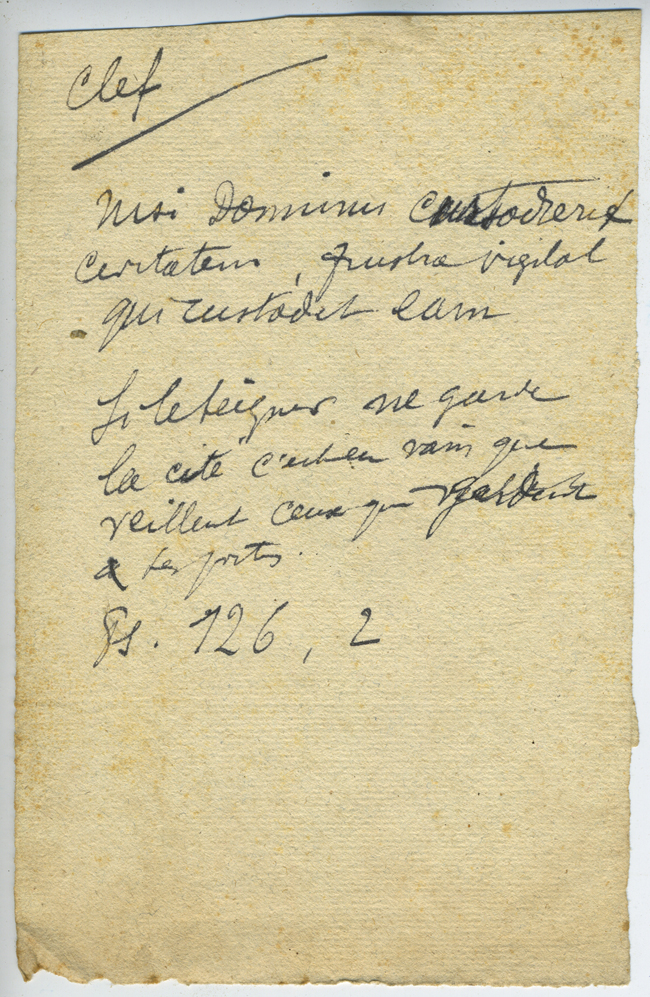 Clef
Nisi Dominus custodierit
civitatem, frustra vigilat
qui custodit eam
Si le Seigneur ne garde
la cité c'est en vain que
veillent ceux qui gardent
à ses portes.
Ps. 126, 2